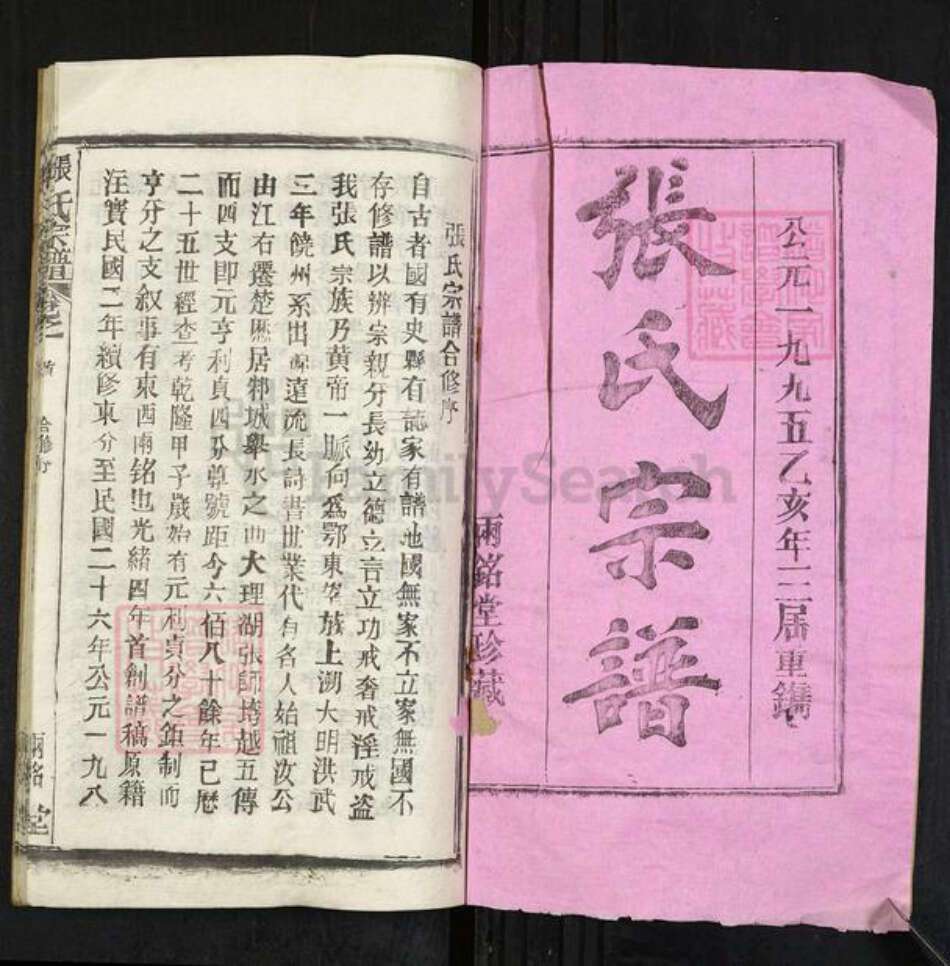 公元一九九五乙亥年三届重鐫
張氏宗譜
兩銘堂珍藏
張氏宗譜合修序
自古者國有史縣有誌家有譜地國無家不立家無國不
存修譜以辨宗親分長幼立德立言立功戒奢戒淫戒盗
我張氏宗族乃黄帝一脈何爲鄂東望族上溯大明洪武
三年饒州系出源遠流長詩書世業代有名人始祖汝公
由江右遷楚歷居邾城舉水之曲大理湖張師垮越五傳
而四支即元亨利貞四分尊號距今六佰八十餘年已歷
二十五世經查考乾隆甲子歲始有元利貞分之鉅制而
亨分之支叙事有東西南铭也光緒四年首創譜稿原籍
注實民國二年續修東分至民國二十六年公元一九八
張氏宗譜
合修序
兩銘堂
FamilySearch